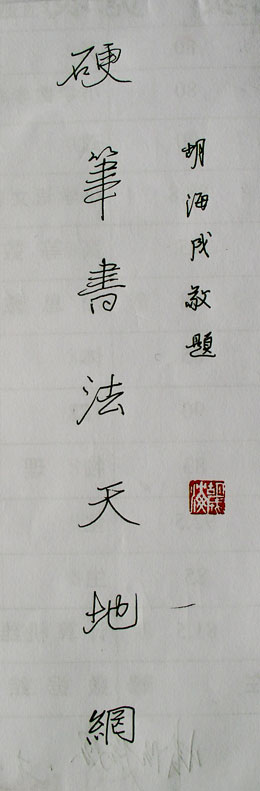 硬筆書法天地網
胡海成敬題